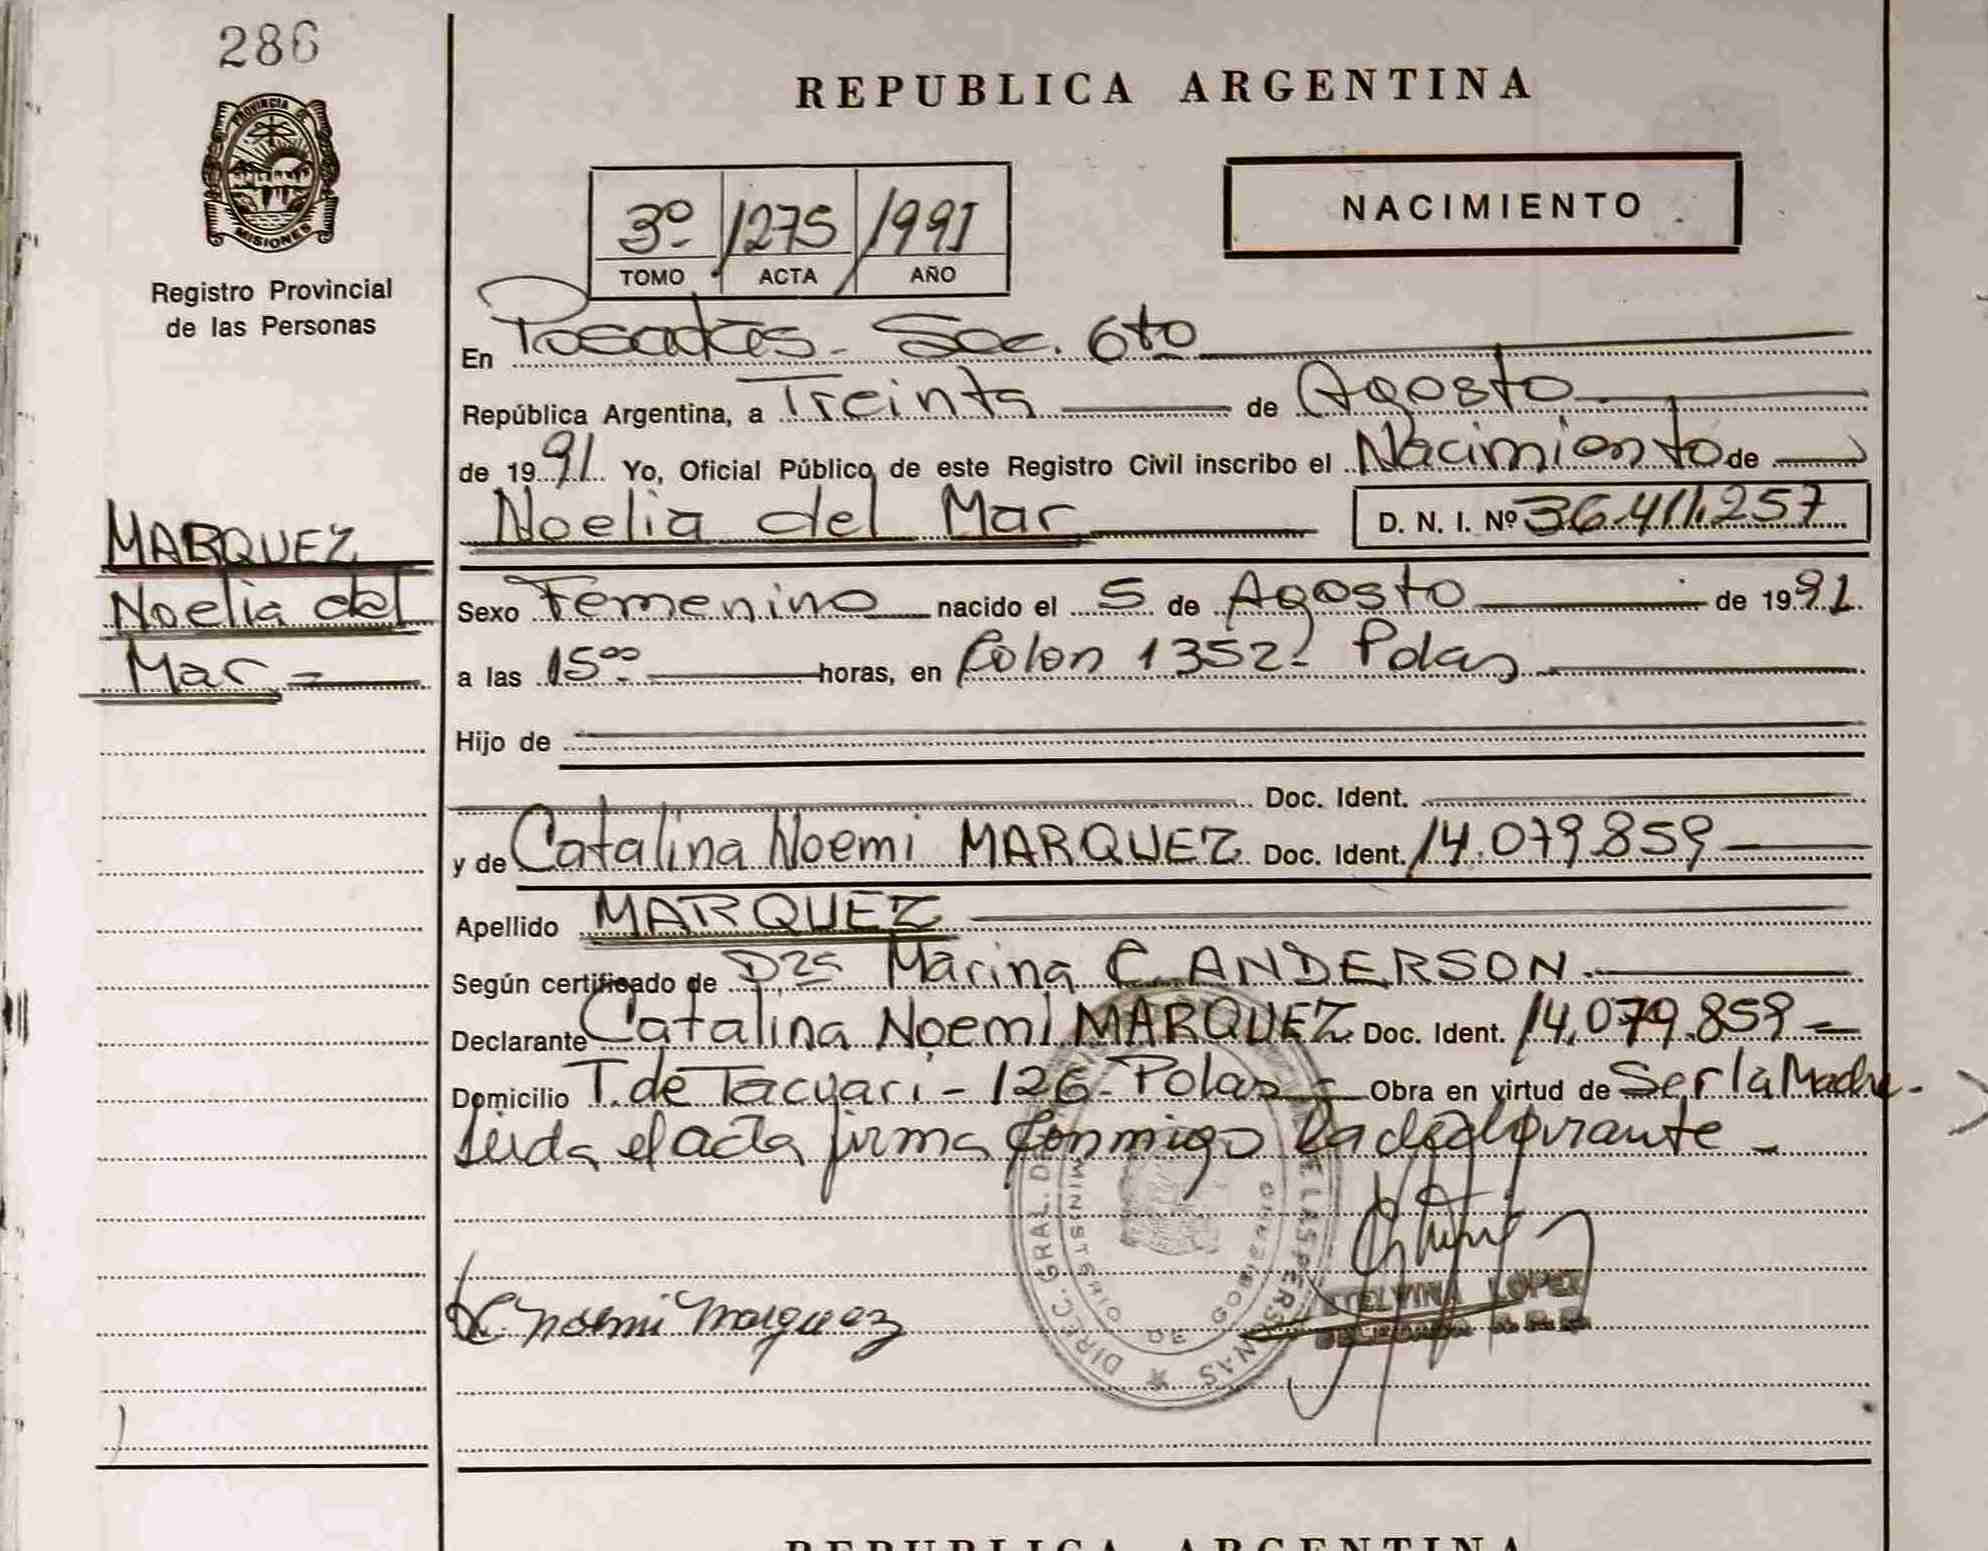 286
PROVINCIA DE
MISIONES
Registro Provincial
de las Personas
MARQUEZ
Noelia del
Mar
REPUBLICA ARGENTINA
3º 1275 1991
TOMO ACTA AÑO
NACIMIENTO
En Posadas - Sec. 6to
República Argentina, a Treinta de Agosto
de 1991 Yo, Oficial Público de este Registro Civil inscribo el Nacimiento de
Noelia del Mar D. N. I. Nº 36.411.257
Sexo Femenino nacido el 5 de Agosto de 1991.
a las 15⁰⁰ horas, en Colon 1352 - Pdas
Hijo de
Doc. Ident.
y de Catalina Noemi MARQUEZ Doc. Ident. 14.079.859
Apellido MARQUEZ
Según certificado de Marina C. ANDERSON
Declarante Catalina Noemi MARQUEZ Doc. Ident. 14.079.859
Domicilio T. de Tacuari - 126 - Pdas - Obra en virtud de Ser la Madre.
Leida el acta firma conmigo la declarante -
C. Noemi Marquez
LOPEZ
DIREC. GRAL. DE LAS PERSONAS
MINISTERIO DE GOBIERNO
REPUBLICA ARGENTINA